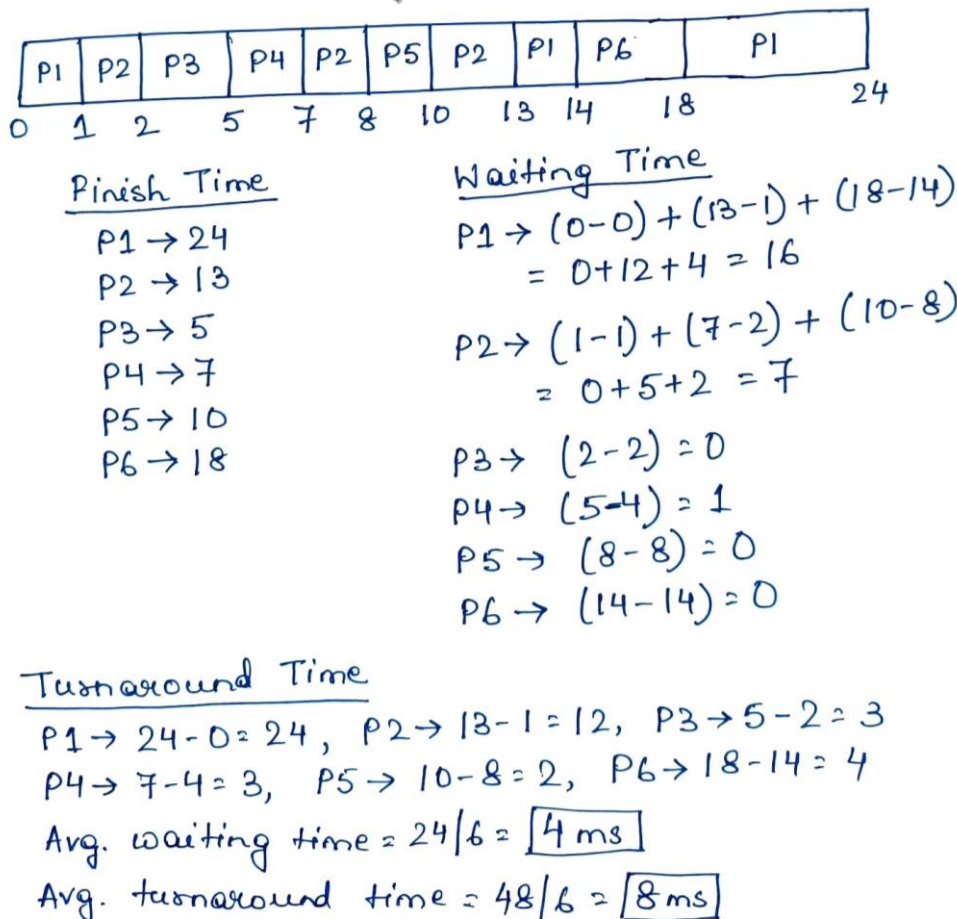 P1 P2 P3 P4 P2 P5 P2 P1 P6 P1
0 1 2 5 7 8 10 13 14 18 24
Finish Time
P1 → 24
P2 → 13
P3 → 5
P4 → 7
P5 → 10
P6 → 18
Waiting Time
P1 → (0-0) + (13-1) + (18-14)
= 0+12+4 = 16
P2 → (1-1) + (7-2) + (10-8)
= 0+5+2 = 7
P3 → (2-2) = 0
P4 → (5-4) = 1
P5 → (8-8) = 0
P6 → (14-14) = 0
Turnaround Time
P1 → 24-0 = 24, P2 → 13-1 = 12, P3 → 5-2 = 3
P4 → 7-4 = 3, P5 → 10-8 = 2, P6 → 18-14 = 4
Avg. waiting time = 24/6 = 4 ms
Avg. turnaround time = 48/6 = 8 ms